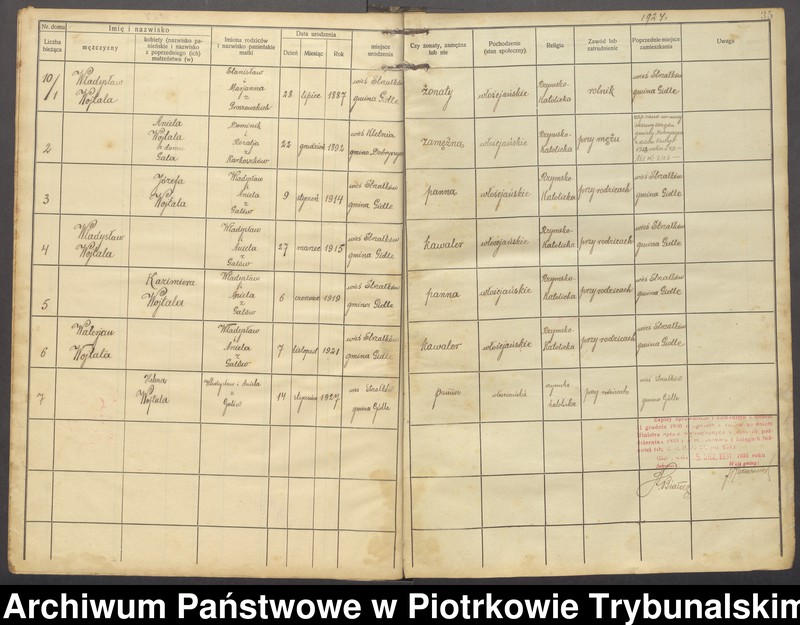 1927.
35
Nr. domu
Imię i nazwisko
Data urodzenia
Liczba bieżąca
mężczyzny
kobiety (nazwisko panieńskie i nazwisko z poprzedniego (ich) małżeństwa (w)
Imiona rodziców i nazwisko panieńskie matki
Dzień
Miesiąc
Rok
miejsce urodzenia
Czy żonaty, zamężna lub nie
Pochodzenie (stan społeczny)
Religja
Zawód lub zatrudnienie
Poprzednie miejsce zamieszkania
Uwaga
10/1
Władysław Wojtala
Stanisław i Marjanna z
28
lipiec
1887
wieś Strzałków gmina Gidle
żonaty
włościańskie
Rzymsko-Katolicka
rolnik
wieś Strzałków gmina Gidle
2
Aniela Wojtala z domu Gala
Dominik i Rozalja z
22
grudzień
1892
wieś Kletnia gmina
zamężna
włościańskie
Rzymsko-Katolicka
przy mężu
3
Józefa Wojtala
Władysław i Aniela z Galów
9
styczeń
1914
wieś Strzałków gmina Gidle
panna
włościańskie
Rzymsko-Katolicka
przy rodzicach
wieś Strzałków gmina Gidle
4
Władysław Wojtala
Władysław i Aniela z Galów
27
marzec
1915
wieś Strzałków gmina Gidle
kawaler
włościańskie
Rzymsko-Katolicka
przy rodzicach
wieś Strzałków gmina Gidle
5
Kazimiera Wojtala
Władysław i Aniela z Galów
6
czerwiec
1919
wieś Strzałków gmina Gidle
panna
włościańskie
Rzymsko-Katolicka
przy rodzicach
wieś Strzałków gmina Gidle
6
Walerjan Wojtala
Władysław i Aniela z Galów
7
listopad
1921
wieś Strzałków gmina Gidle
kawaler
włościańskie
Rzymsko-Katolicka
przy rodzicach
wieś Strzałków gmina Gidle
7
Helena Wojtala
Władysław i Aniela z Galów
14
stycznia
1927
wieś Strzałków gmina Gidle
panna
włościańskie
rzymsko katolicka
przy rodzicach
wieś Strzałków gmina Gidle
Archiwum Państwowe w Piotrkowie Trybunalskim